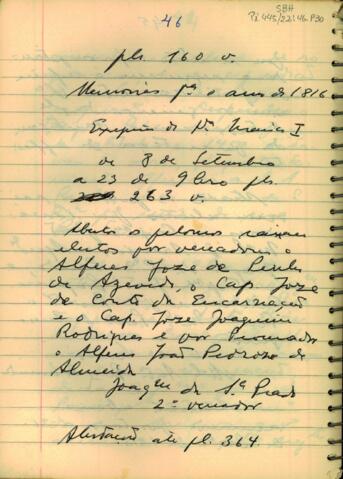 46
SBH
Pi 445/22:46 P30
fls. 160 v.
Memorias pª o anno de 1816
Exequias de Dª Maria I
de 8 de Setembro
a 23 de 9bro fls.
263 v.
Abertos o pelouro
eleitos por vereadores o
Alferes Joze de
de Azevedo, o Cap. Joze
da Costa da Encarnação
e o Cap. Joze Joaquim
Rodrigues e por Procurador
o Alferes João Pedrozo de
Almeida
Joaqm da Sª Prado
2º vereador
até fl. 364.